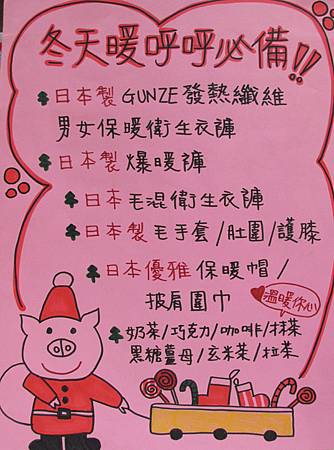 冬天暖呼呼必備!!
日本製 GUNZE 發熱纖維
男女保暖衛生衣褲
日本製 爆暖褲
日本毛混衛生衣褲
日本製毛手套/肚圍/護膝
日本優雅保暖帽/
披肩圍巾
溫暖你心
奶茶/巧克力/咖啡/抹茶
黑糖薑母/玄米茶/拉茶